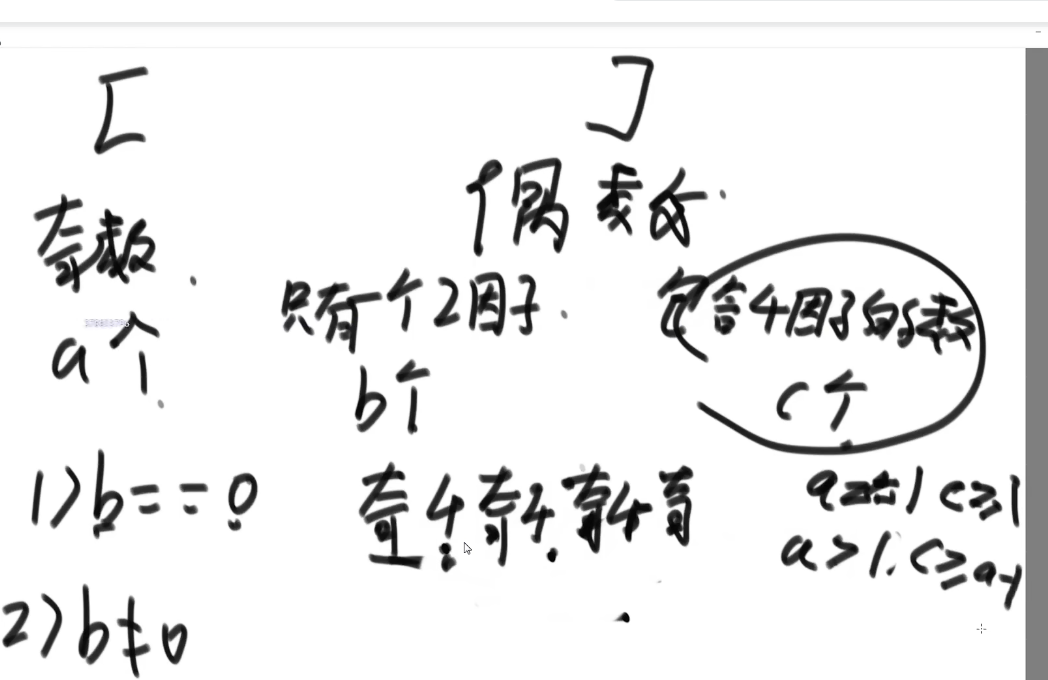 [ ]
奇数 偶数
只有一个2因子 包含4因子的数
a个 b个 c个
1) b==0 奇4奇4奇4奇 a==1 c≥1
a>1, c≥a-1
2) b≠0